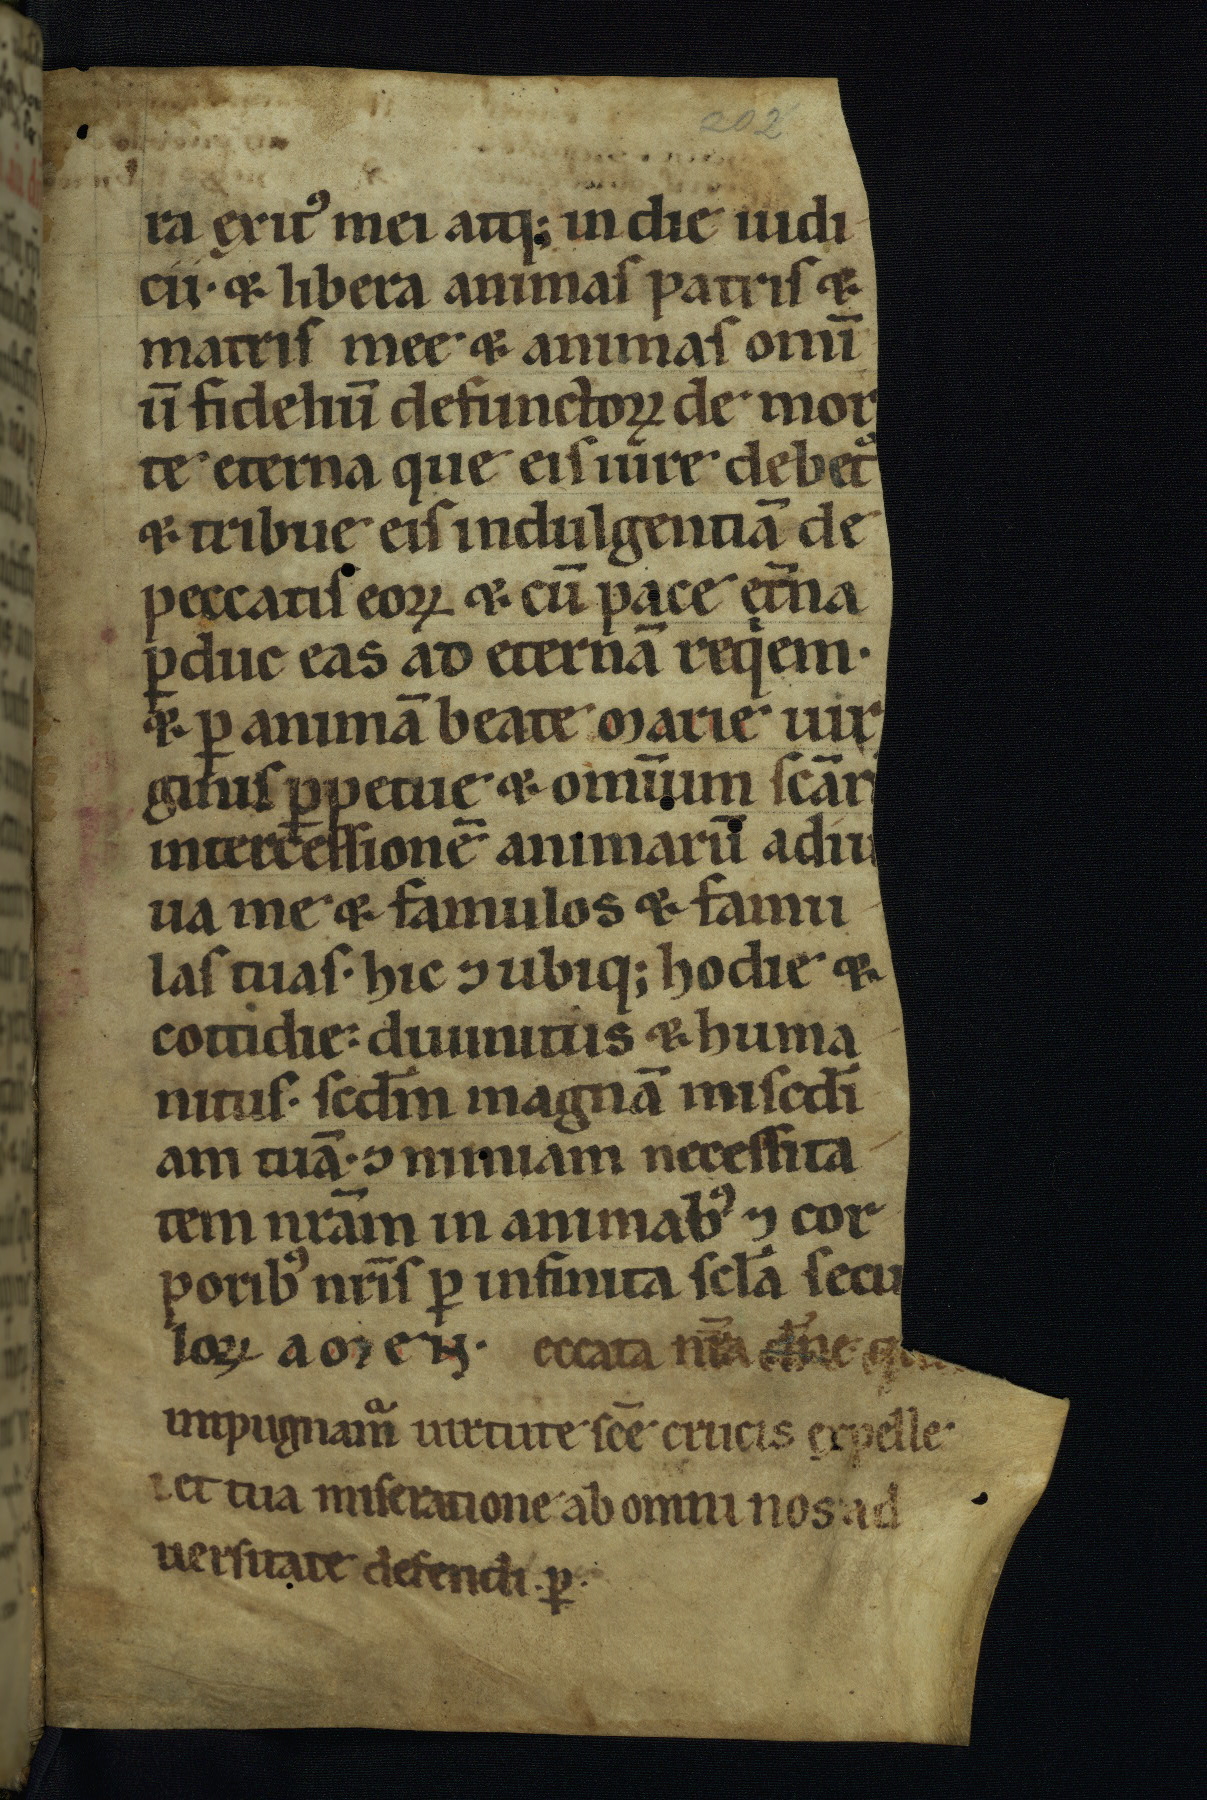 202
ra exit᾽ mei atq; in die iudi
cii· & libera animas patris &
matris mee & animas omī
ū fideliū defunctoꝝ de mor
te eterna que eis iure debet᾽
& tribue eis indulgentiā de
peccatis eoꝝ & cū pace et̄na
ꝑduc eas ad eternā reqͥem·
& ꝑ animā beate Marie uir
ginis ꝑpetue & omnium scār
intercessionē animarū adiu
ua me & famulos & famu
las tuas· hic ⁊ ubiq; hodie &
cottidie: diuinitus & huma
nitus· scdm̄ magnā miscdī
am tuā· ⁊ nimiam necessita
tem nrām in animab᾽ ⁊ cor
porib᾽ nrīs ꝑ infinita scl̄a secu
loꝝ aMeN· eccata nrā dn̄e
impugnamͣ uirtute scē crucis expelle
et tua miseratione ab omni nos ad
uersitate defendi· ꝑ·